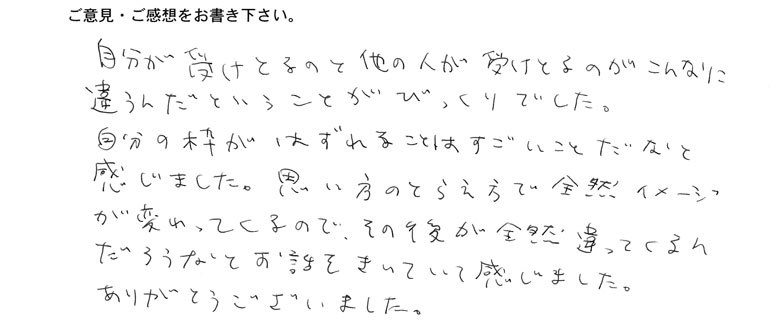 ご意見・ご感想をお書き下さい。
自分が受けとるのと他の人が受けとるのがこんなに
違うんだということがびっくりでした。
自分の枠がはずれることはすごいことだなと
感じました。思い方のとらえ方で全然イメージ
が変わってくるので、その後が全然違ってくるん
だろうなとお話をきいていて感じました。
ありがとうございました。